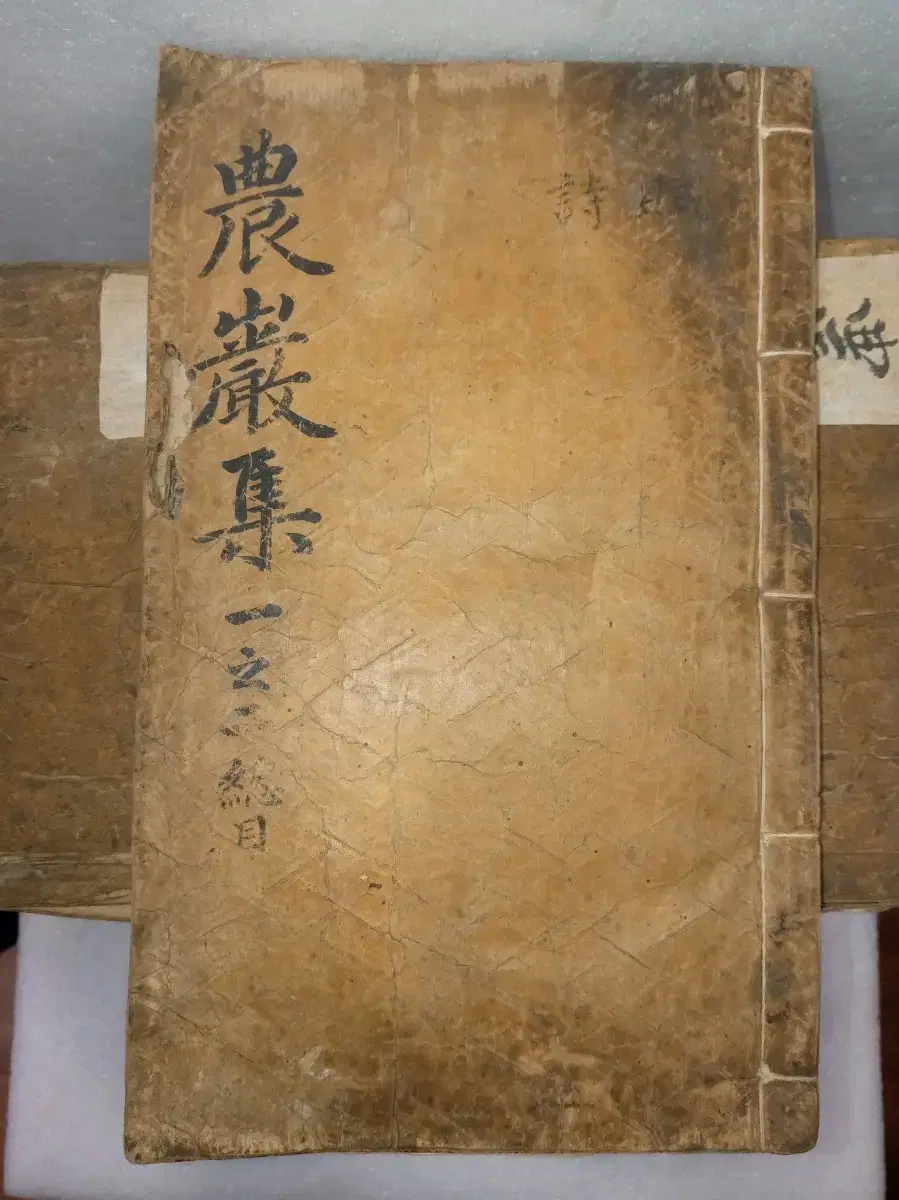 農巖集 一之二 總目
詩